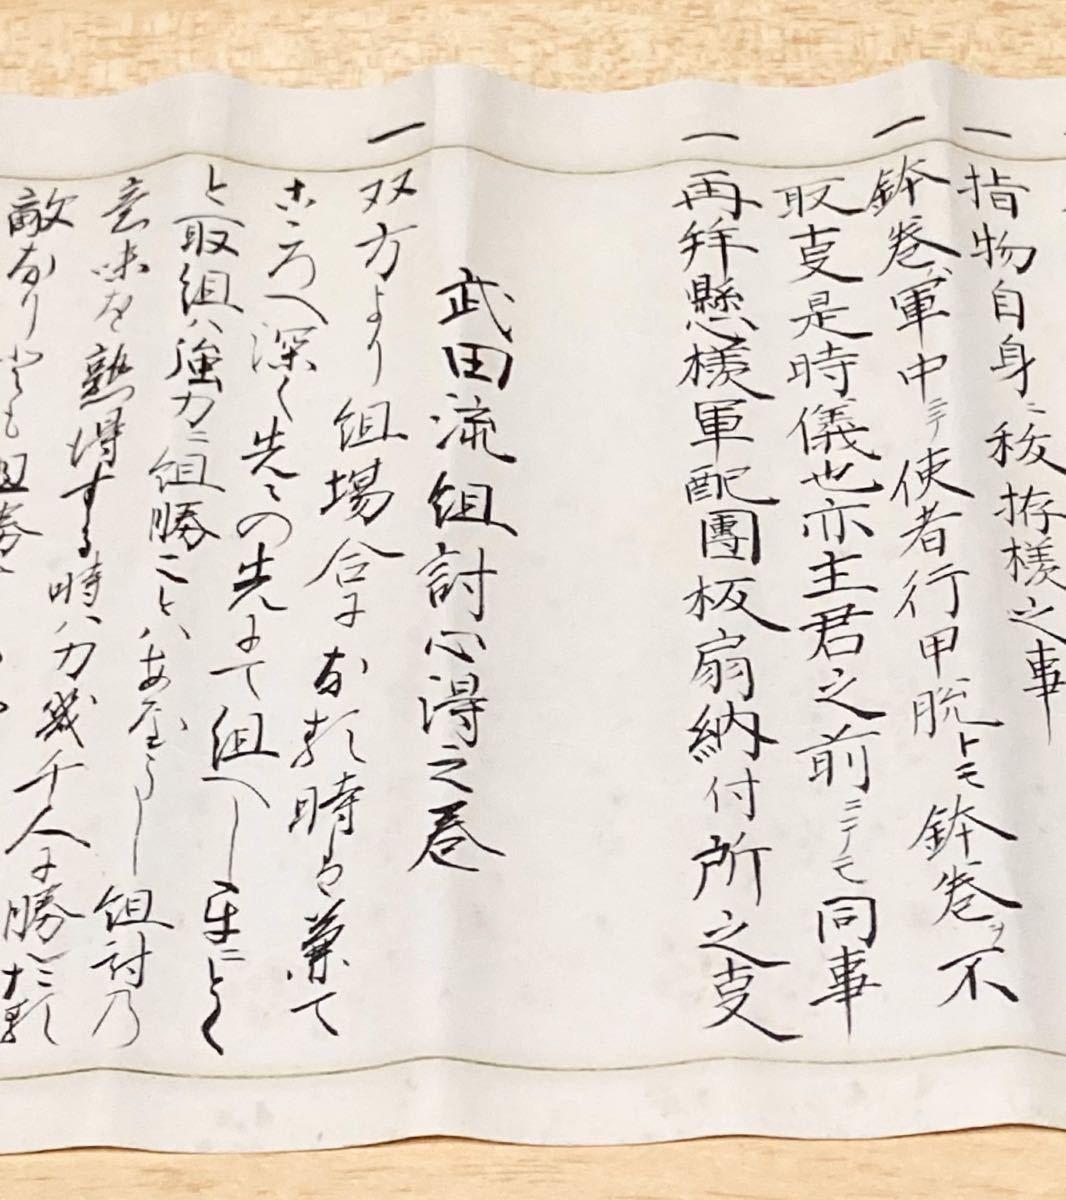 一 指物自身ニ秘拵様之事
一 鉢巻ハ軍中ニテ使者行甲脱トモ鉢巻ヲ不
取支是時儀也亦主君之前ニテモ同事
一 再拜懸様軍配團板扇納付所之支
武田流組討心得之巻
一 双方より組場合におゐて時は兼て
こゝろへ深く先々の先にて組へし
と取組ハ強力ニ組勝ことハあるへし組討乃
意味を熟得する時ハ力幾千人に勝
敵なりとも組勝